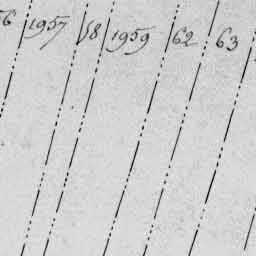 56 1957 58 1959 62 63